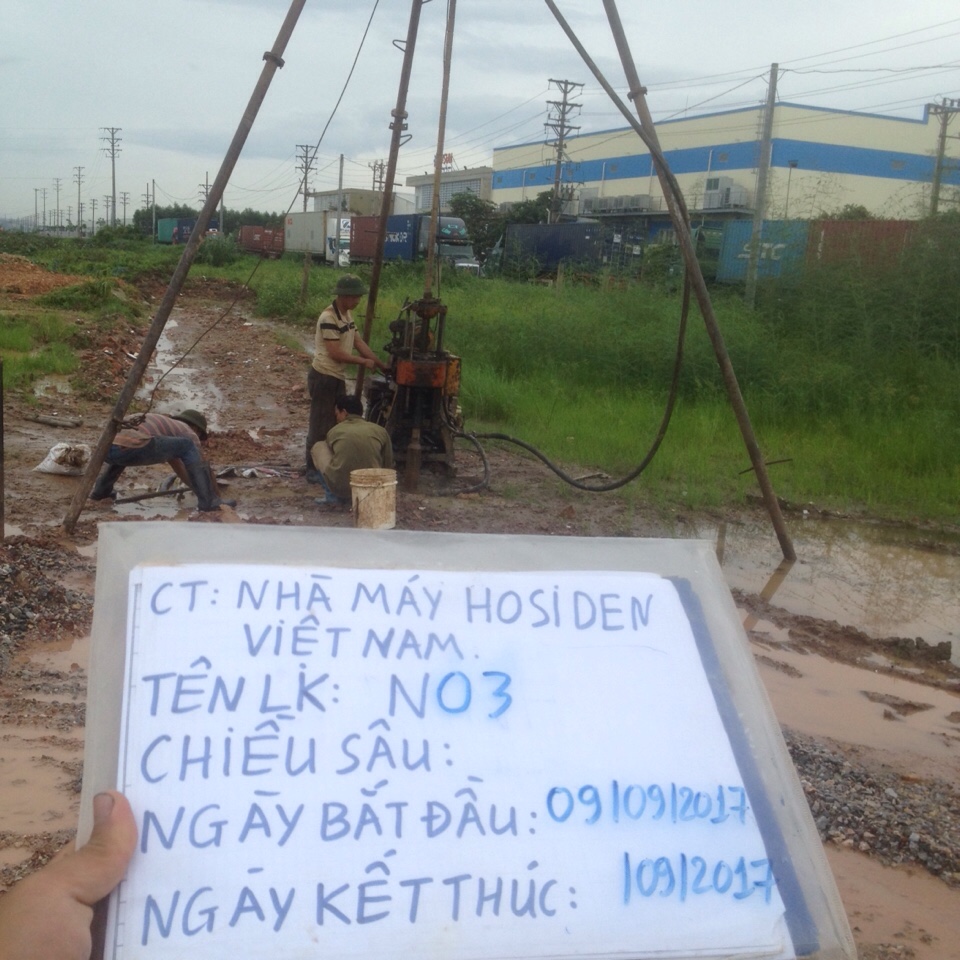 STC
CT: NHÀ MÁY HOSIDEN
VIỆT NAM.
TÊN LK: N03
CHIỀU SÂU:
NGÀY BẮT ĐẦU: 09/09/2017
NGÀY KẾT THÚC: /09/2017